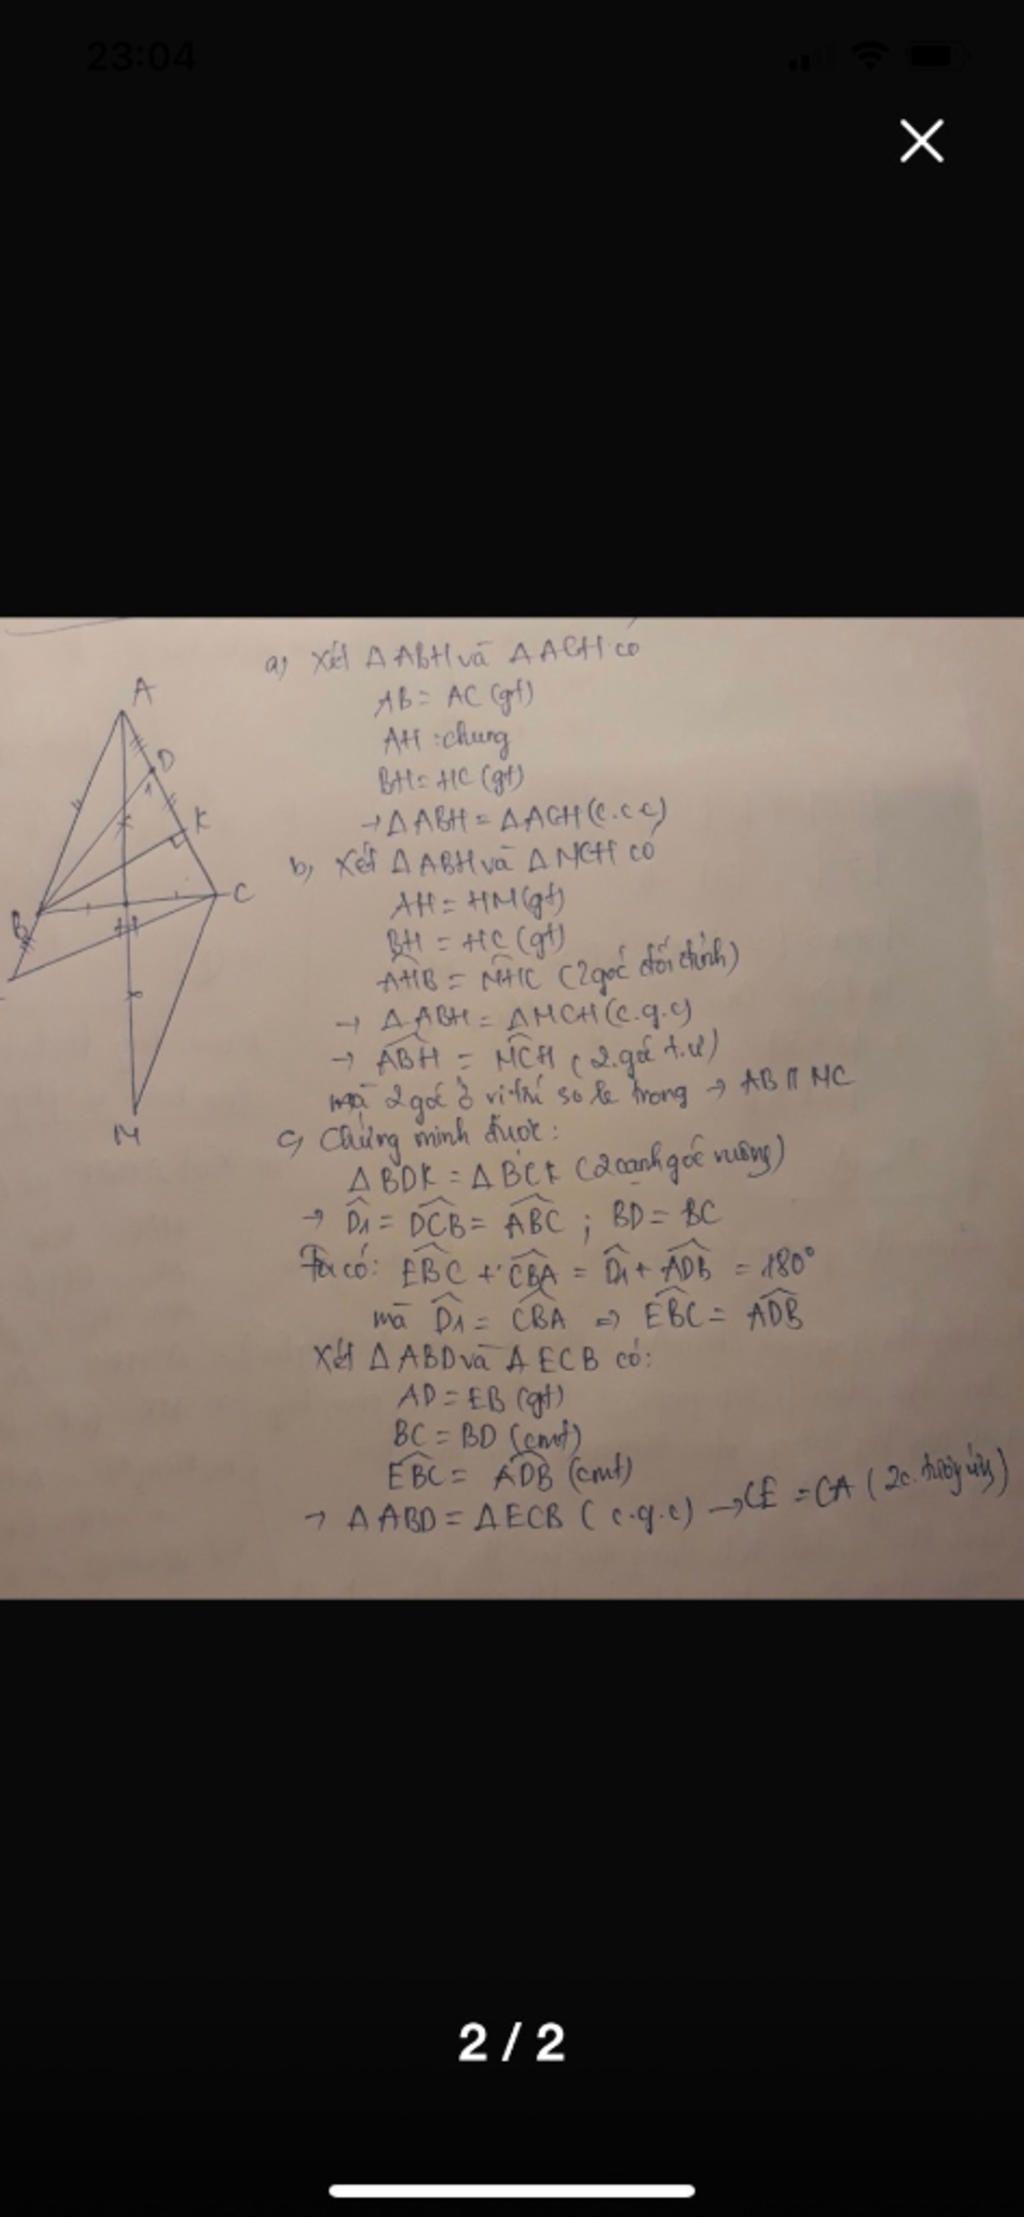 23:04
a) Xét Δ ABH và Δ ACH có
A
AB = AC (gt)
AH : chung
D
BH = HC (gt)
1
→ Δ ABH = Δ ACH (c.c.c)
K
b) Xét Δ ABH và Δ MCH có
C
AH = HM (gt)
B
H
BH = HC (gt)
AHB = MHC (2 góc đối đỉnh)
→ Δ ABH = Δ MCH (c.g.c)
→ ABH = MCH (2 góc t.ư)
mà 2 góc ở vị trí so le trong → AB // MC
M
c) Chứng minh được:
Δ BDK = Δ BCK (2 cạnh góc vuông)
→ D1 = DCB = ABC ; BD = BC
Ta có: EBC + CBA = D1 + ADB = 180°
mà D1 = CBA => EBC = ADB
Xét Δ ABD và Δ ECB có:
AD = EB (gt)
BC = BD (cmt)
EBC = ADB (cmt)
→ Δ ABD = Δ ECB (c.g.c) → CE = CA (2c. tương ứng)
2 / 2